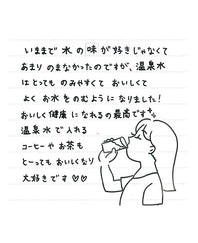 いままで 水 の 味が 好きじゃなくて
あまり のまなかったのですが、温泉水
は とっても のみやすくて おいしくて
よく お水 を のむように なりました!
おいしく 健康 に なれるの 最高です
温泉 水 で 入れる
コーヒー や お茶 も
とーっても おいしくなり
大好き です ♡♡